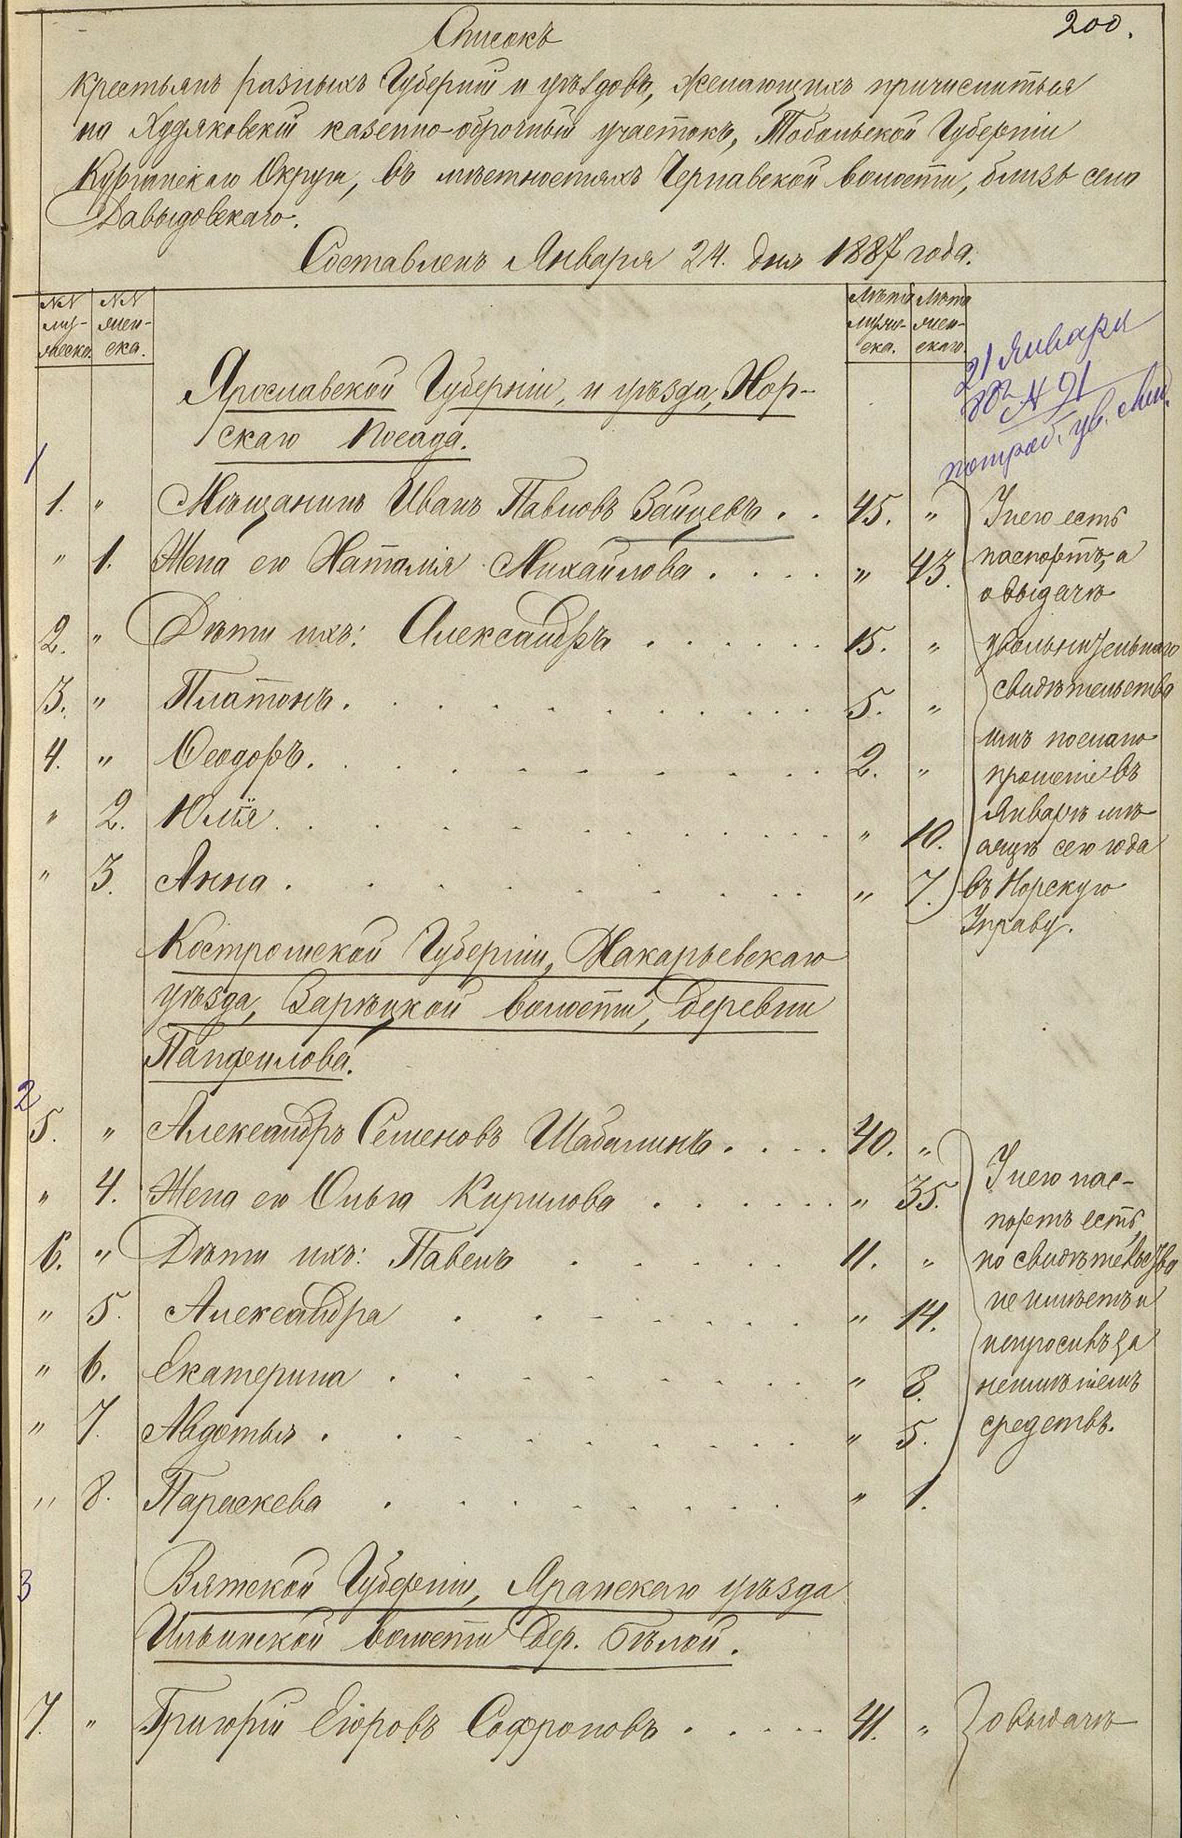 200.
Списокъ
крестьянъ разныхъ Губерній и уѣздовъ, желающихъ причислиться
на Худяковскій казенно-оброчный участокъ, Тобольской Губерніи
Курганскаго Округа, въ мѣстностяхъ Чернавской волости, близь села
Давыдовскаго.
Составленъ Января 24. дня 1887 года.
№№ муж-ческа.
№№ жен-ска.
Лѣта мужс-ска.
Лѣта жен-скаго.
21 Января
№ 91
потреб. ув. свид.
Ярославской Губерніи, и уѣзда, Нор-
скаго Посада.
1
1. " Мѣщанинъ Иванъ Павловъ Зайцевъ . . 45. "
" 1. Жена его Наталія Михайлова . . . . " 43.
2. " Дѣти ихъ: Александръ . . . . . . 15. "
3. " Платонъ . . . . . . . . . . 5. "
4. " Ѳеодоръ . . . . . . . . . . 2. "
" 2. Юлія . . . . . . . . . . " 10.
" 3. Анна . . . . . . . . . . " 7.
У него есть
паспортъ, а
о выдачѣ
увольнительнаго
свидѣтельства
имъ послано
прошеніе въ
Январѣ мѣ-
сяцѣ сего года
въ Норскую
Управу.
Костромской Губерніи, Макарьевскаго
уѣзда, Зарѣцкой волости, деревни
Панфилова.
2
5. " Александръ Семеновъ Шабалинъ . . . . 40. "
" 4. Жена его Ольга Кирилова . . . . . . " 35.
6. " Дѣти ихъ: Павелъ . . . . . 11. "
" 5. Александра . . . . . . . " 14.
" 6. Екатерина . . . . . . . . " 8.
" 7. Авдотья . . . . . . . . . " 5.
" 8. Параскева . . . . . . . . " 1.
У него пас-
портъ есть,
но свидѣтельства
не имѣетъ и
непросивъ за
неимѣніемъ
средствъ.
3
Вятской Губерніи, Яранскаго уѣзда
Ильинской волости дер. Бѣлой.
7. " Григорій Егоровъ Софроновъ . . . . . 41. "
о выдачѣ